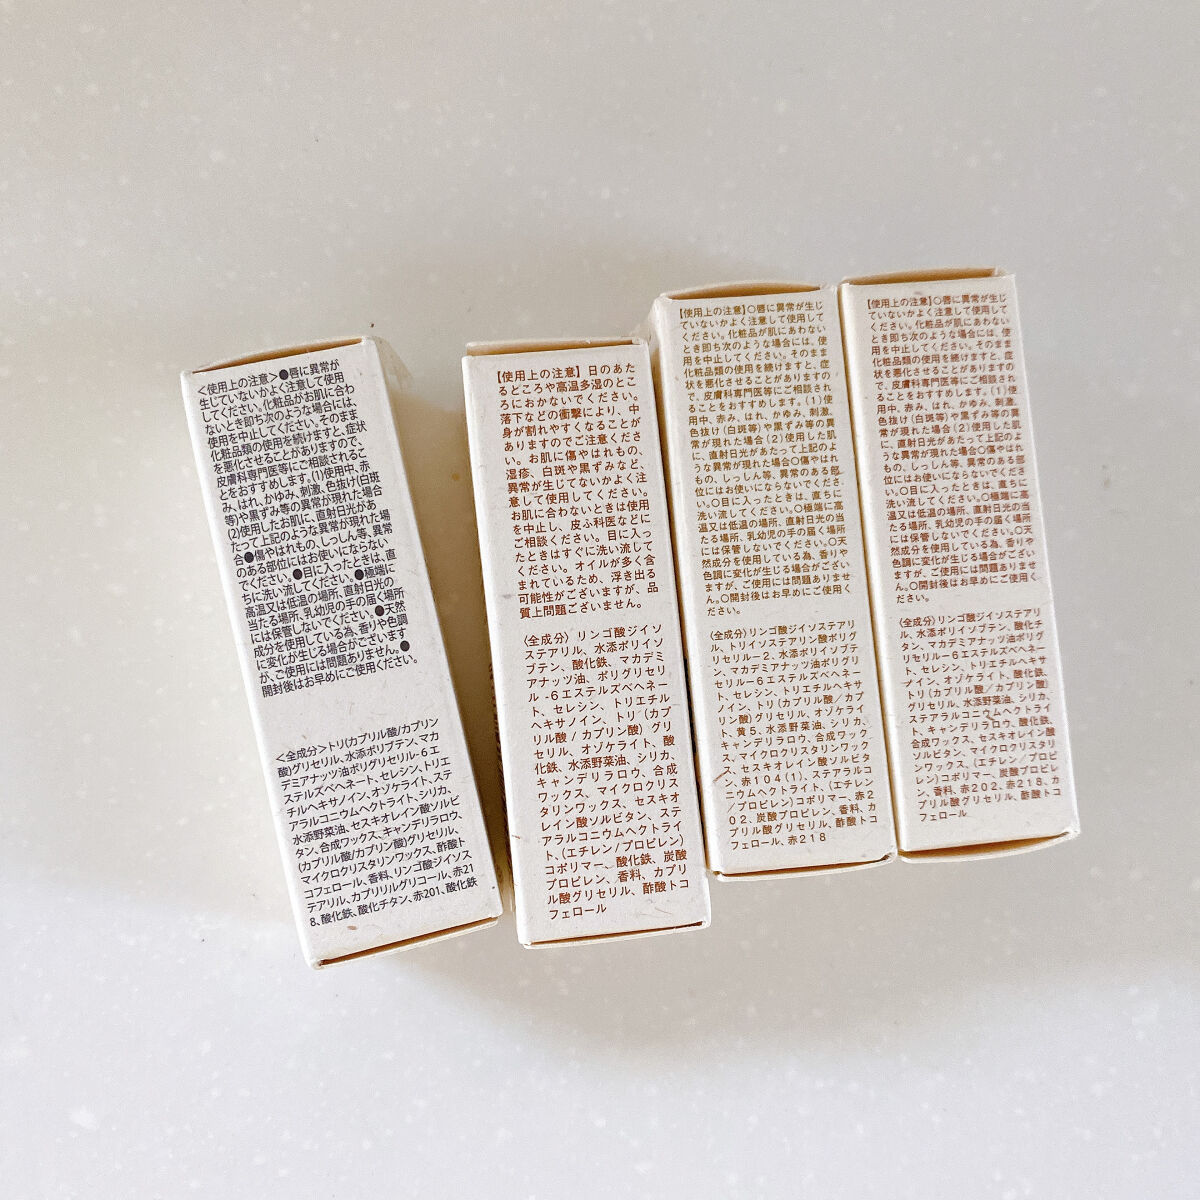 <使用上の注意>●唇に異常が
生じていないかよく注意して使用
してください。化粧品がお肌に合わ
ないとき即ち次のような場合には、
使用を中止してください。そのまま
化粧品類の使用を続けますと、症状
を悪化させることがありますので、
皮膚科専門医等にご相談されるこ
とをおすすめします。(1)使用中、赤
み、はれ、かゆみ、刺激、色抜け(白斑
等)や黒ずみ等の異常が現れた場合
(2)使用したお肌に、直射日光があ
たって上記のような異常が現れた場
合●傷やはれもの、しっしん等、異常
のある部位にはお使いにならない
でください。●目に入ったときは、直
ちに洗い流してください。●極端に
高温又は低温の場所、直射日光の
当たる場所、乳幼児の手の届く場所
には保管しないでください。●天然
成分を使用している為、香りや色調
に変化が生じる場合がございます
が、ご使用には問題ありません。●
開封後はお早めにご使用ください。
<全成分>トリ(カプリル酸/カプリン
酸)グリセリル、水添ポリブテン、マカ
デミアナッツ油ポリグリセリル-6エ
ステルズベヘネート、セレシン、トリエ
チルヘキサノイン、オゾケライト、ステ
アラルコニウムヘクトライト、シリカ、
水添野菜油、セスキオレイン酸ソルビ
タン、合成ワックス、キャンデリラロウ、
(カプリル酸/カプリン酸)グリセリル、
マイクロクリスタリンワックス、酢酸ト
コフェロール、香料、リンゴ酸ジイソス
テアリル、カプリリルグリコール、赤21
8、酸化鉄、酸化チタン、赤201、酸化鉄
【使用上の注意】日のあた
るどころや高温多湿のとこ
ろにおかないでください。
落下などの衝撃により、中
身が割れやすくなることが
ありますのでご注意くださ
い。お肌に傷やはれもの、
湿疹、白斑や黒ずみなど、
異常が生じてないかよく注
意して使用してください。
お肌に合わないときは使用
を中止し、皮ふ科医などに
ご相談ください。目に入っ
たときはすぐに洗い流して
ください。オイルが多く含
まれているため、浮き出る
可能性がございますが、品
質上問題ございません。
〈全成分〉リンゴ酸ジイソ
ステアリル、水添ポリイソ
ブテン、酸化鉄、マカデミ
アナッツ油、ポリグリセリ
ル-6エステルズベヘネー
ト、セレシン、トリエチル
ヘキサノイン、トリ(カプリ
ル酸/カプリン酸)グリ
セリル、オゾケライト、酸
化鉄、水添野菜油、シリカ、
キャンデリラロウ、合成
ワックス、マイクロクリス
タリンワックス、セスキオ
レイン酸ソルビタン、ステ
アラルコニウムヘクトライ
ト、(エチレン/プロピレン)
コポリマー、酸化鉄、炭酸
プロピレン、香料、カプリ
ル酸グリセリル、酢酸トコ
フェロール
【使用上の注意】○唇に異常が生じ
ていないかよく注意して使用して
ください。化粧品が肌にあわない
とき即ち次のような場合には、使
用を中止してください。そのまま
化粧品類の使用を続けますと、症
状を悪化させることがありますの
で、皮膚科専門医等にご相談され
ることをおすすめします。(1)使
用中、赤み、はれ、かゆみ、刺激、
色抜け(白斑等)や黒ずみ等の異
常が現れた場合(2)使用した肌
に、直射日光があたって上記のよ
うな異常が現れた場合○傷やはれ
もの、しっしん等、異常のある部
位にはお使いにならないでくださ
い。○目に入ったときは、直ちに
洗い流してください。○極端に高
温又は低温の場所、直射日光の当
たる場所、乳幼児の手の届く場所
には保管しないでください。○天
然成分を使用している為、香りや
色調に変化が生じる場合がござい
ますが、ご使用には問題ありませ
ん。○開封後はお早めにご使用く
ださい。
〈全成分〉リンゴ酸ジイソステアリ
ル、トリイソステアリン酸ポリグ
リセリル-2、水添ポリイソブテ
ン、マカデミアナッツ油ポリグリ
セリル-6エステルズベヘネー
ト、セレシン、トリエチルヘキサノ
イン、トリ(カプリル酸/カプ
リン酸)グリセリル、オゾケライ
ト、黄5、水添野菜油、シリカ、
キャンデリラロウ、合成ワック
ス、マイクロクリスタリンワック
ス、セスキオレイン酸ソルビタ
ン、赤104(1)、ステアラルコ
ニウムヘクトライト、(エチレン
/プロピレン)コポリマー、赤2
02、炭酸プロピレン、香料、カ
プリル酸グリセリル、酢酸トコ
フェロール、赤218
【使用上の注意】○唇に異常が生じ
ていないかよく注意して使用して
ください。化粧品が肌にあわない
とき即ち次のような場合には、使
用を中止してください。そのまま
化粧品類の使用を続けますと、症
状を悪化させることがありますの
で、皮膚科専門医等にご相談され
ることをおすすめします。(1)使
用中、赤み、はれ、かゆみ、刺激、
色抜け(白斑等)や黒ずみ等の異
常が現れた場合(2)使用した肌
に、直射日光があたって上記のよ
うな異常が現れた場合○傷やはれ
もの、しっしん等、異常のある部
位にはお使いにならないでくださ
い。○目に入ったときは、直ちに
洗い流してください。○極端に高
温又は低温の場所、直射日光の当
たる場所、乳幼児の手の届く場所
には保管しないでください。○天
然成分を使用している為、香りや
色調に変化が生じる場合がござい
ますが、ご使用には問題ありませ
ん。○開封後はお早めにご使用く
ださい。
〈全成分〉リンゴ酸ジイソステアリ
ル、水添ポリイソブテン、酸化チ
タン、マカデミアナッツ油ポリグ
リセリル-6エステルズベヘネー
ト、セレシン、トリエチルヘキサ
ノイン、オゾケライト、酸化鉄、
トリ(カプリル酸/カプリン酸)
グリセリル、水添野菜油、シリカ、
ステアラルコニウムヘクトライ
ト、キャンデリラロウ、酸化鉄、
合成ワックス、セスキオレイン酸
ソルビタン、マイクロクリスタリ
ンワックス、(エチレン/プロピ
レン)コポリマー、炭酸プロピレ
ン、香料、赤202、赤218、カ
プリル酸グリセリル、酢酸トコ
フェロール